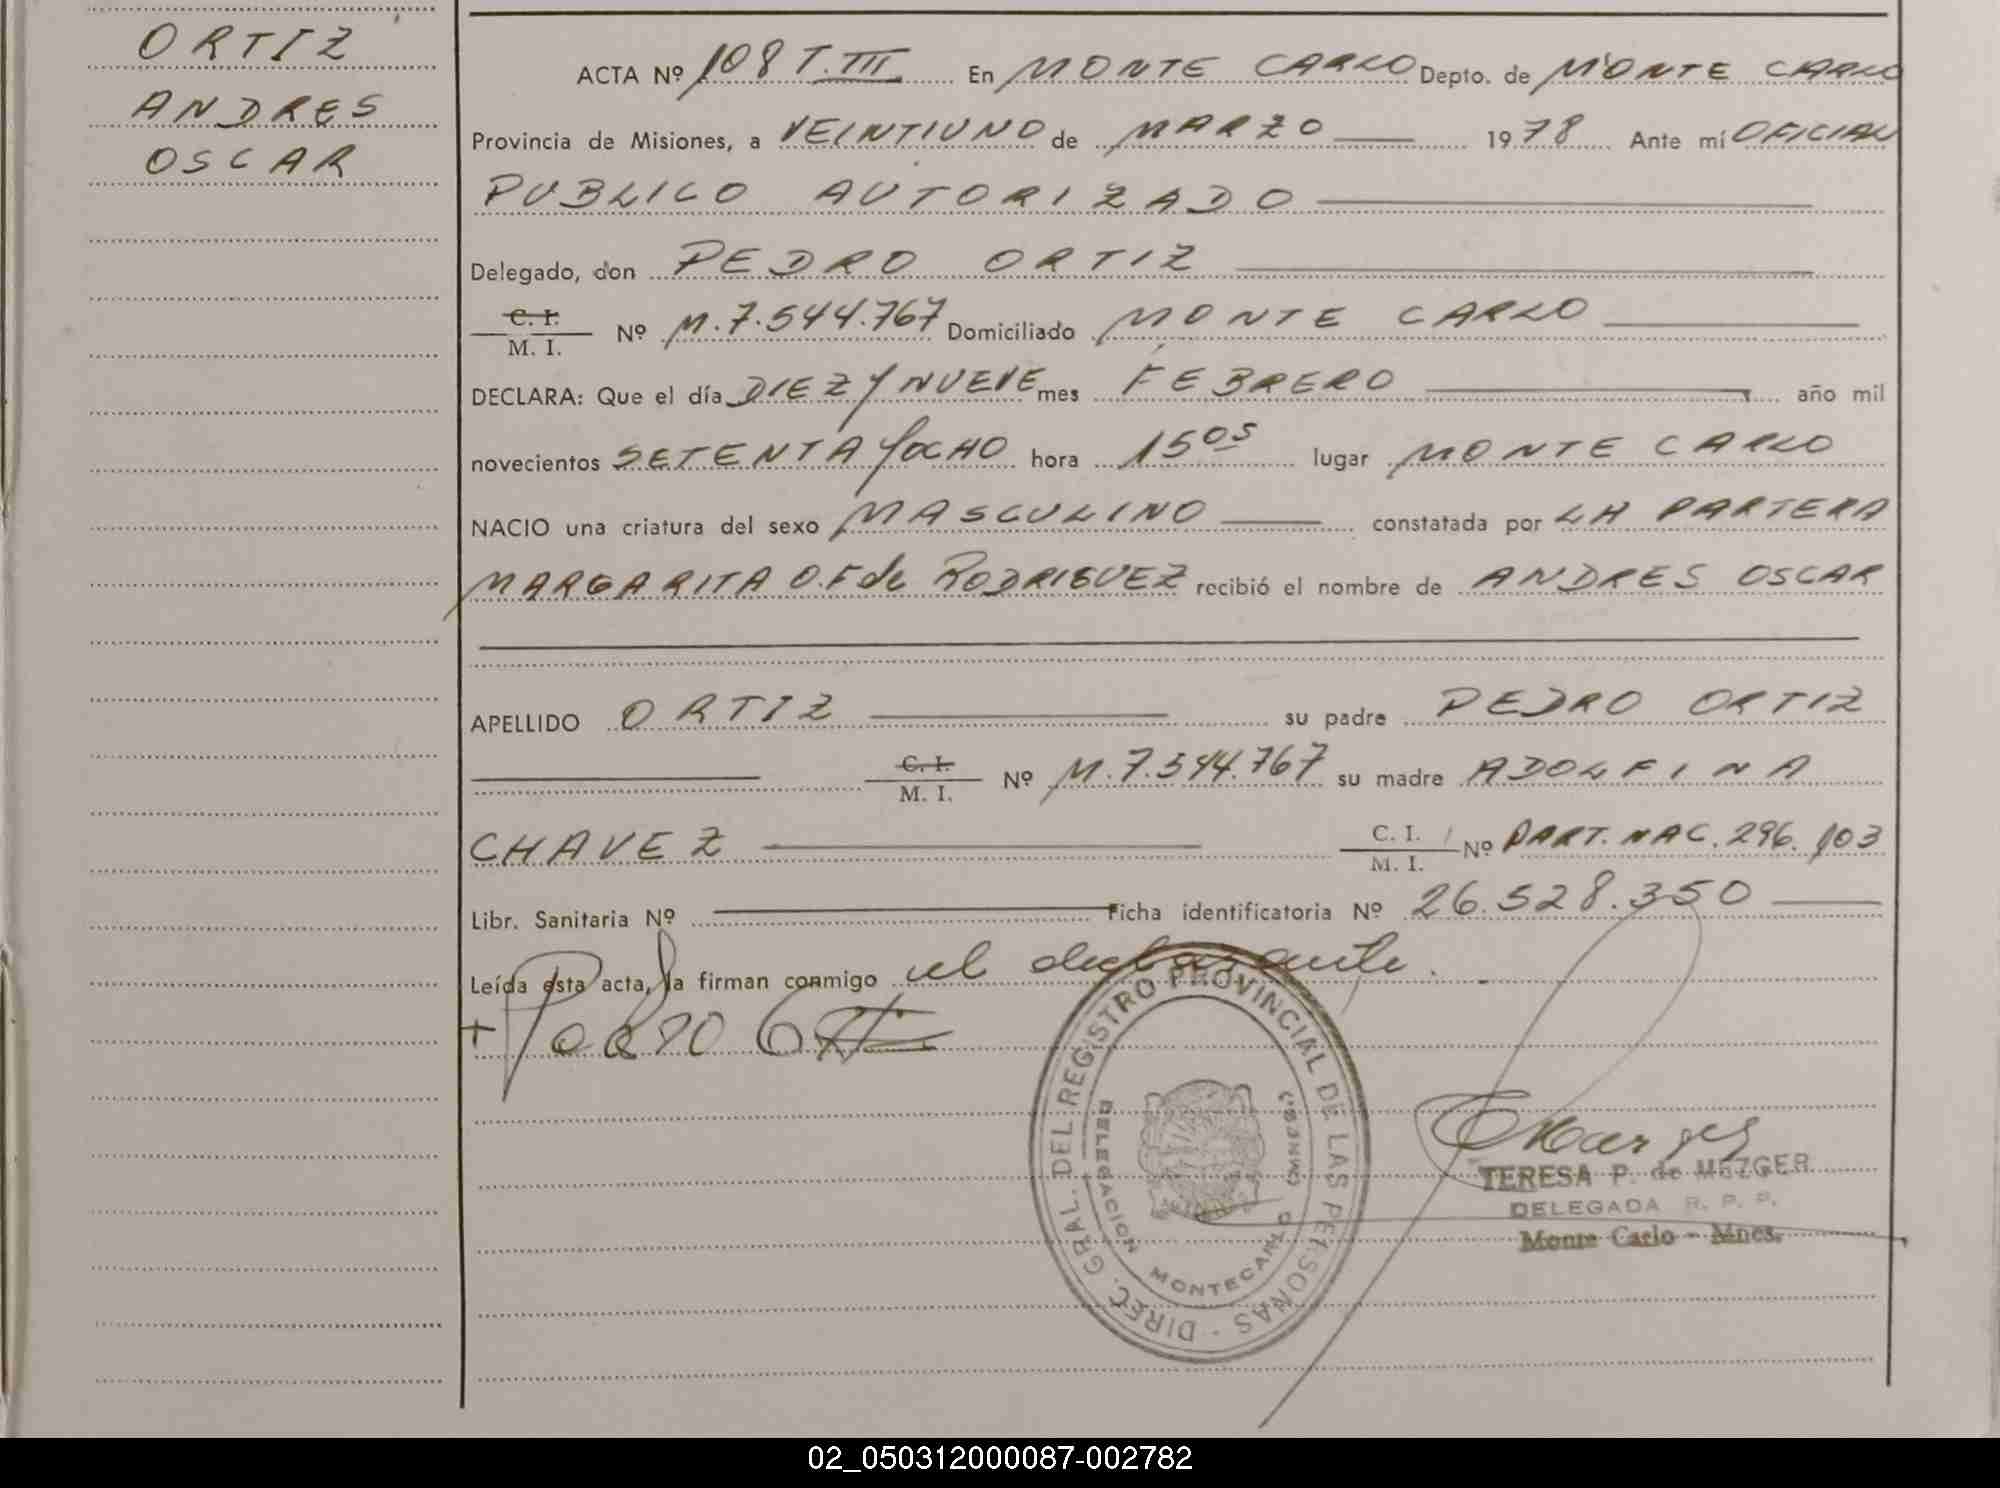 ORTIZ
ANDRES
OSCAR
ACTA Nº 108 T. III En MONTE CARLO Depto. de MONTE CARLO
Provincia de Misiones, a VEINTIUNO de MARZO 1978 Ante mí OFICIAL
PUBLICO AUTORIZADO
Delegado, don PEDRO ORTIZ
C. I.
M. I. Nº M.7.544.767 Domiciliado MONTE CARLO
DECLARA: Que el día DIEZ y NUEVE mes FEBRERO año mil
novecientos SETENTA y OCHO hora 15 OS lugar MONTE CARLO
NACIO una criatura del sexo MASCULINO constatada por LA PARTERA
MARGARITA O.F de RODRIGUEZ recibió el nombre de ANDRES OSCAR
APELLIDO ORTIZ su padre PEDRO ORTIZ
C. I.
M. I. Nº M.7.544.767 su madre ADOLFINA
CHAVEZ C. I.
M. I. Nº PART. NAC. 296. 103
Libr. Sanitaria Nº Ficha identificatoria Nº 26.528.350
Leída ésta acta, la firman conmigo el declarante.
+ Pedro Ortiz
DIREC. GRAL. DEL REGISTRO PROVINCIAL DE LAS PERSONAS
DELEGACION MONTECARLO (MNES.)
TERESA P. de METZGER
DELEGADA R. P. P.
Monte Carlo - Mnes.
02_050312000087-002782